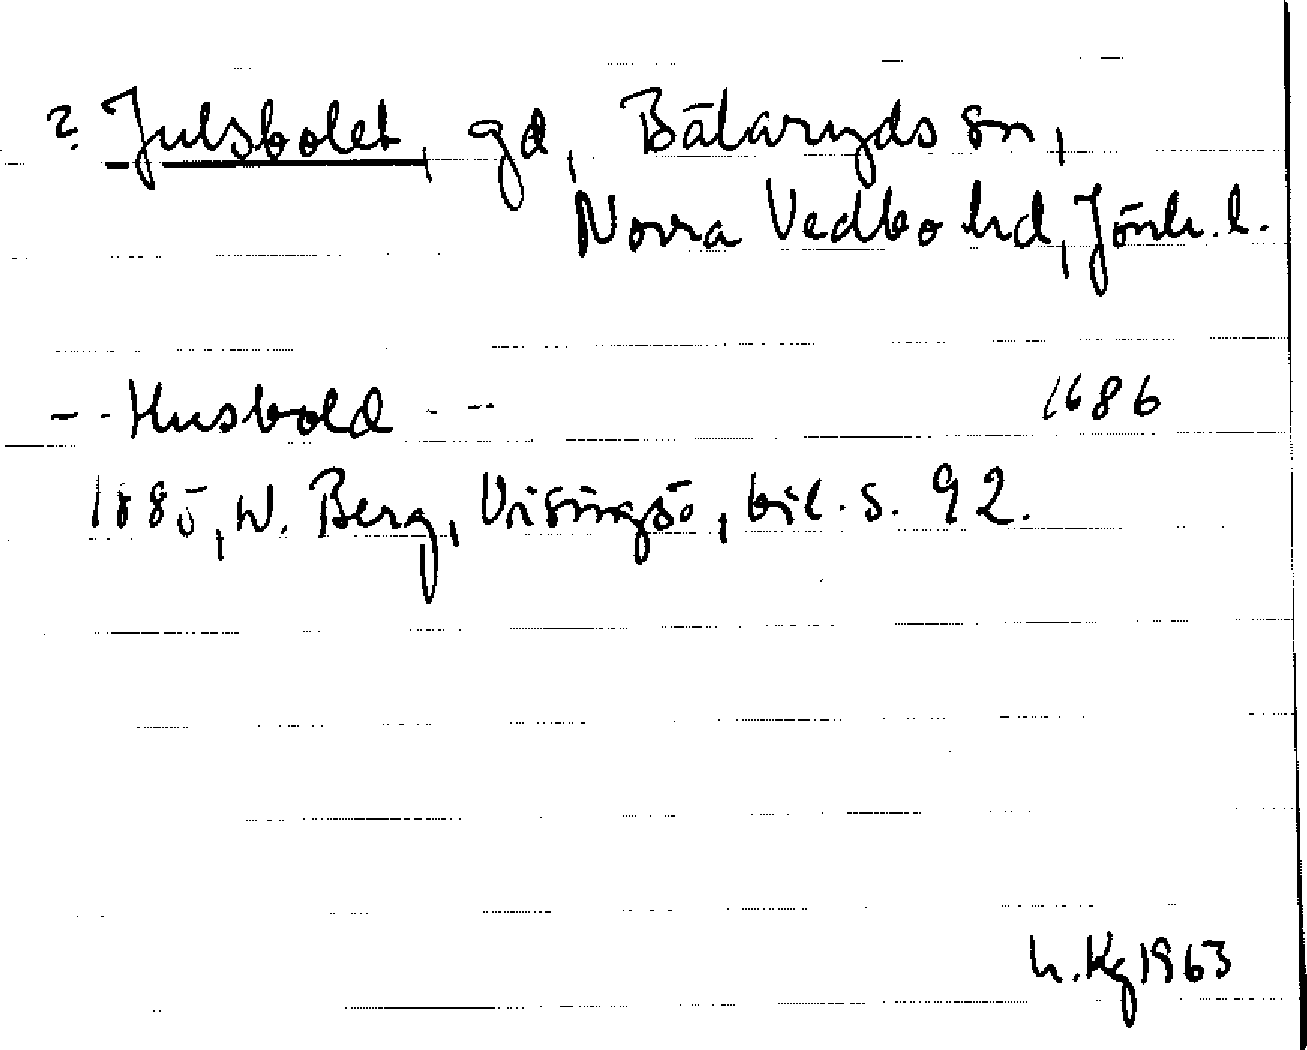 ? Julsbolet, gd, Bälaryds sn,
Norra Vedbo hd, Jönk. l.
-- Husbold -- 1686
1885, W. Berg, Visingsö, bil. s. 92.
h. Kg 1963